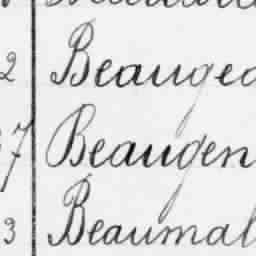 2 Beaugeo
7 Beaugen
3 Beaumal